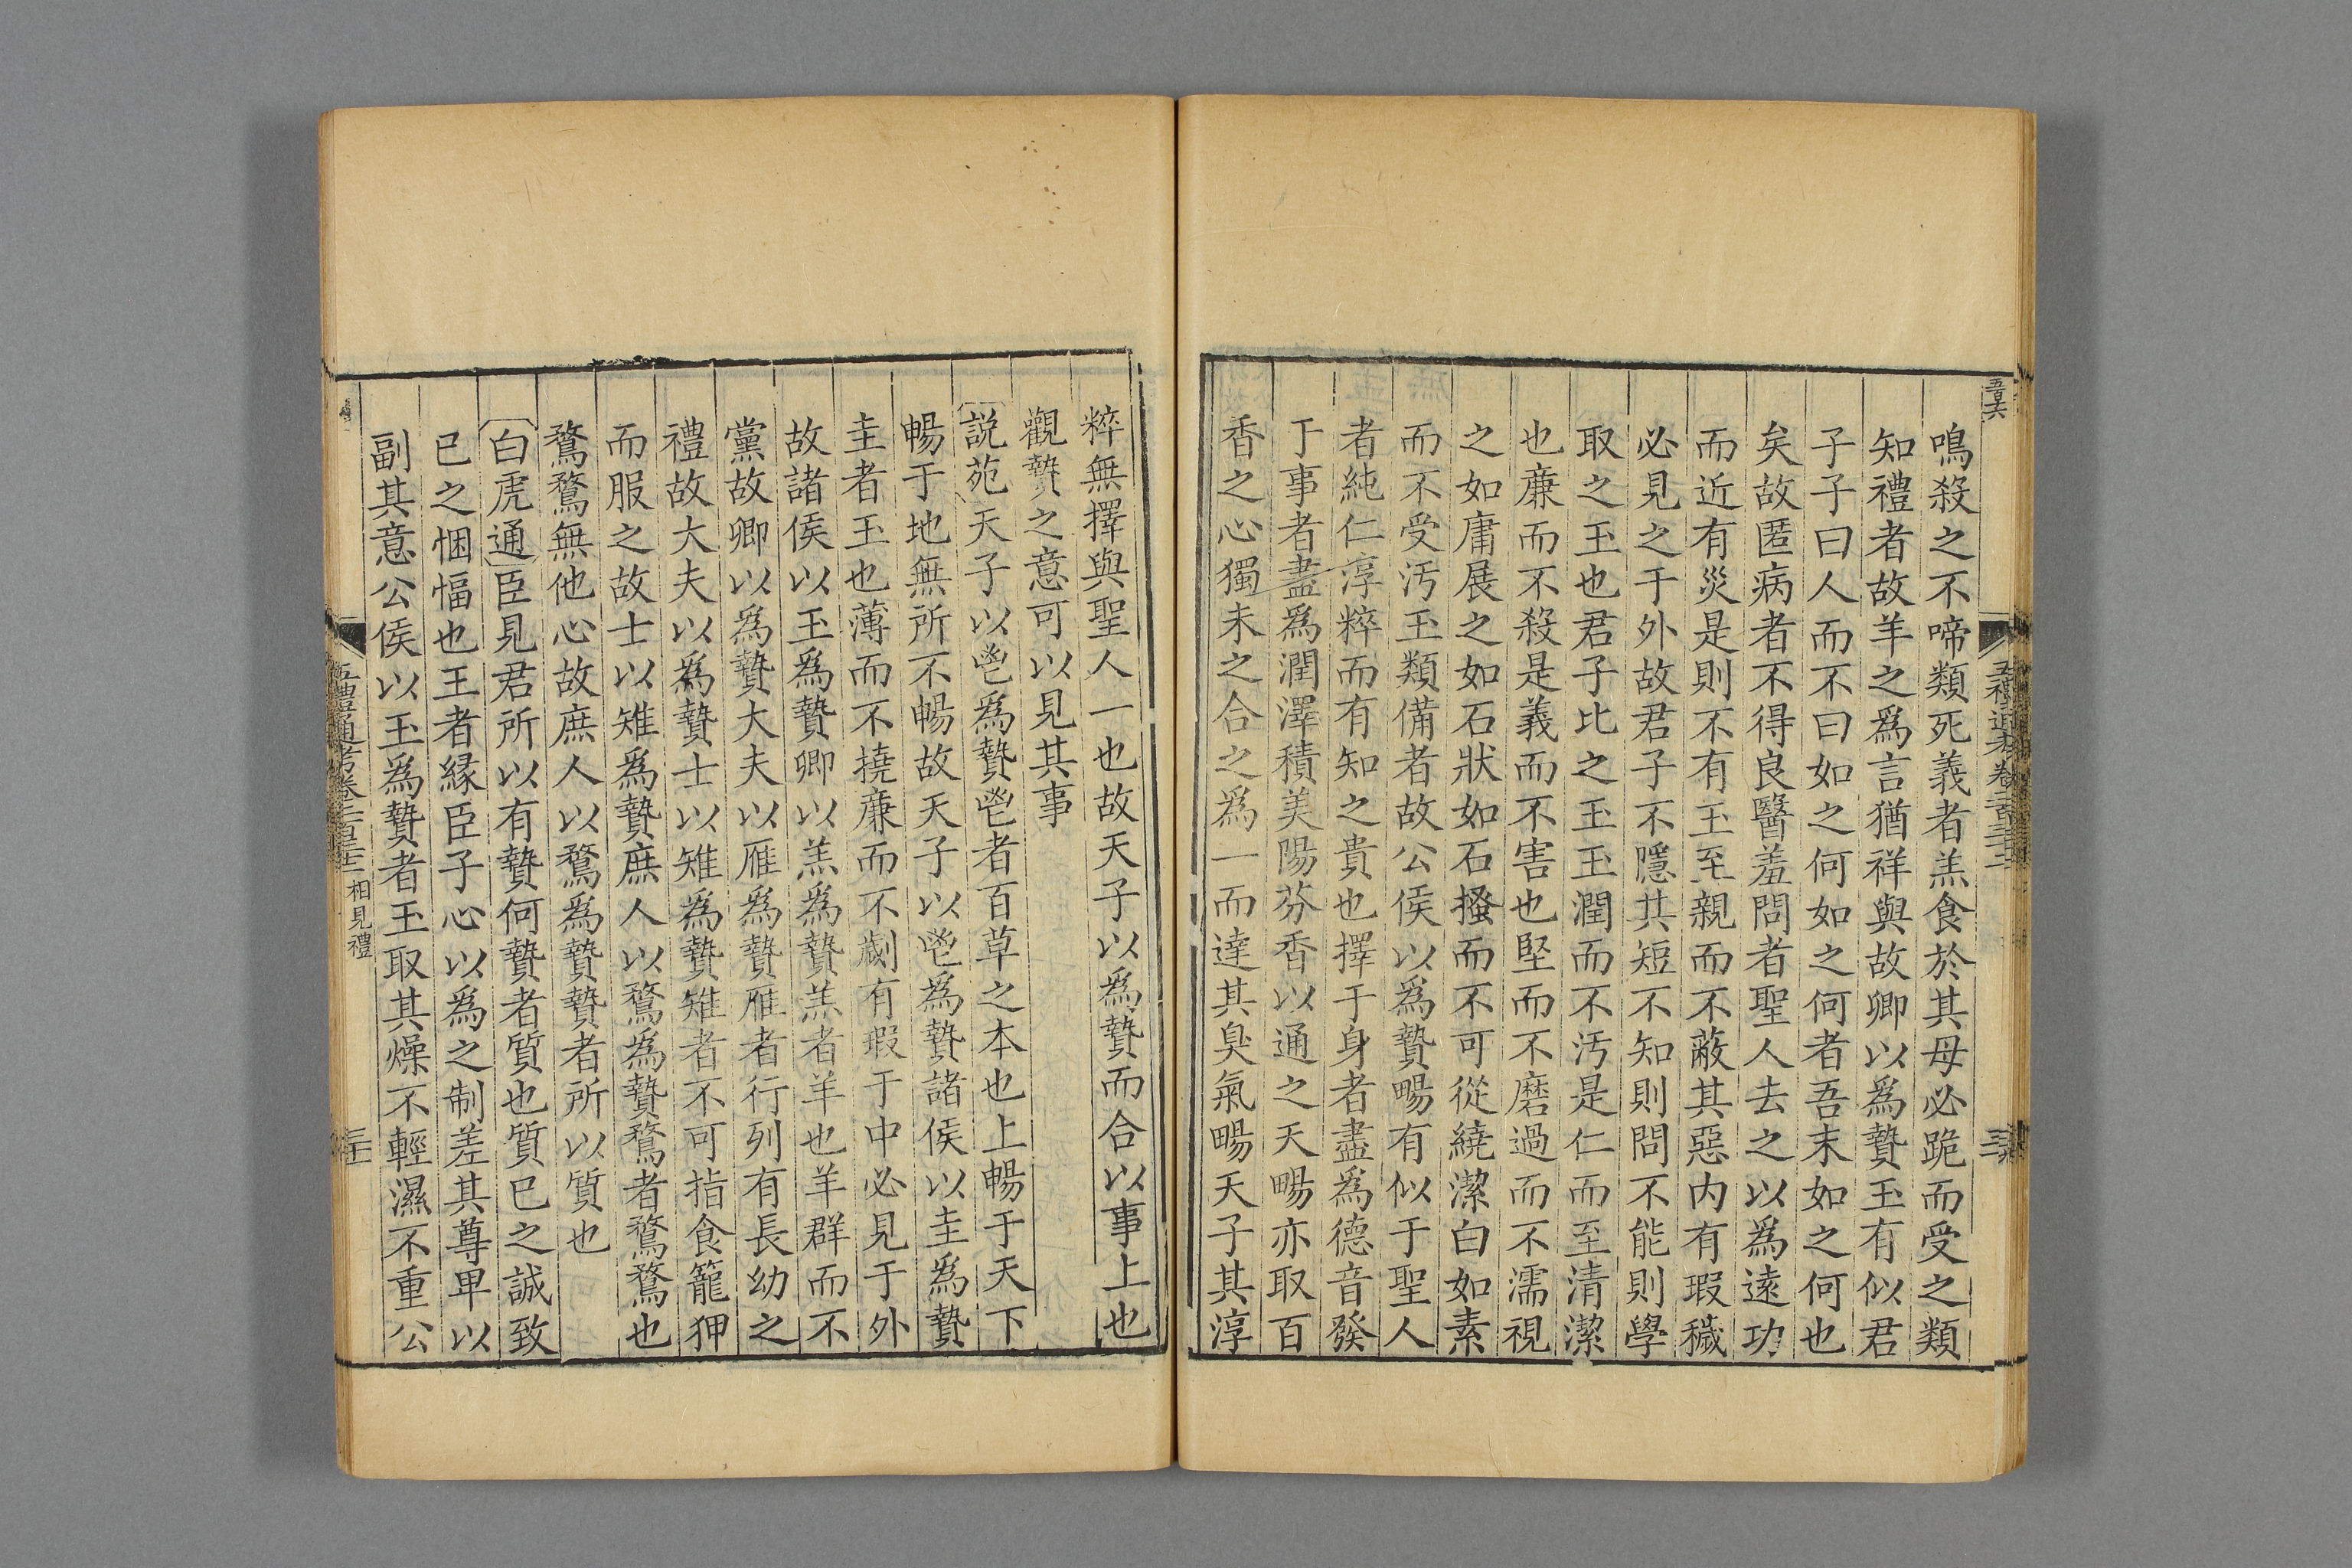 鳴殺之不啼類死義者羔食於其母必跪而受之類
知禮者故羊之爲言猶祥與故卿以爲贄玉有似君
子子曰人而不曰如之何如之何者吾末如之何也
矣故匿病者不得良醫羞問者聖人去之以爲遠功
而近有災是則不有玉至親而不蔽其惡内有瑕穢
必見之于外故君子不隱其短不知則問不能則學
取之玉也君子比之玉玉潤而不汚是仁而至清潔
也亷而不殺是義而不害也堅而不磨過而不濡視
之如庸展之如石狀如石搔而不可從繞潔白如素
而不受汚玉類備者故公侯以爲贄暢有似于聖人
者純仁淳粹而有知之貴也擇于身者盡爲德音發
于事者盡爲潤澤積美陽芬香以通之天暢亦取百
香之心獨末之合之爲一而達其臭氣暢天子其淳
粹無擇與聖人一也故天子以爲贄而合以事上也
觀贄之意可以見其事
說苑天子以鬯爲贄鬯者百草之本也上暢于天下
暢于地無所不暢故天子以鬯爲贄諸侯以圭爲贄
圭者玉也薄而不撓亷而不劌有瑕于中必見于外
故諸侯以玉爲贄卿以羔爲贄羔者羊也羊群而不
黨故卿以爲贄大夫以雁爲贄雁者行列有長幼之
禮故大夫以爲贄士以雉爲贄雉者不可指食籠狎
而服之故士以雉爲贄庶人以鶩爲贄鶩者鶩鶩也
鶩鶩無他心故庶人以鶩爲贄贄者所以質也
白虎通臣見君所以有贄何贄者質也質己之誠致
己之悃愊也王者緣臣子心以爲之制差其尊卑以
副其意公侯以玉爲贄者玉取其燥不輕濕不重公
五禮通考卷二百三十二 相見禮